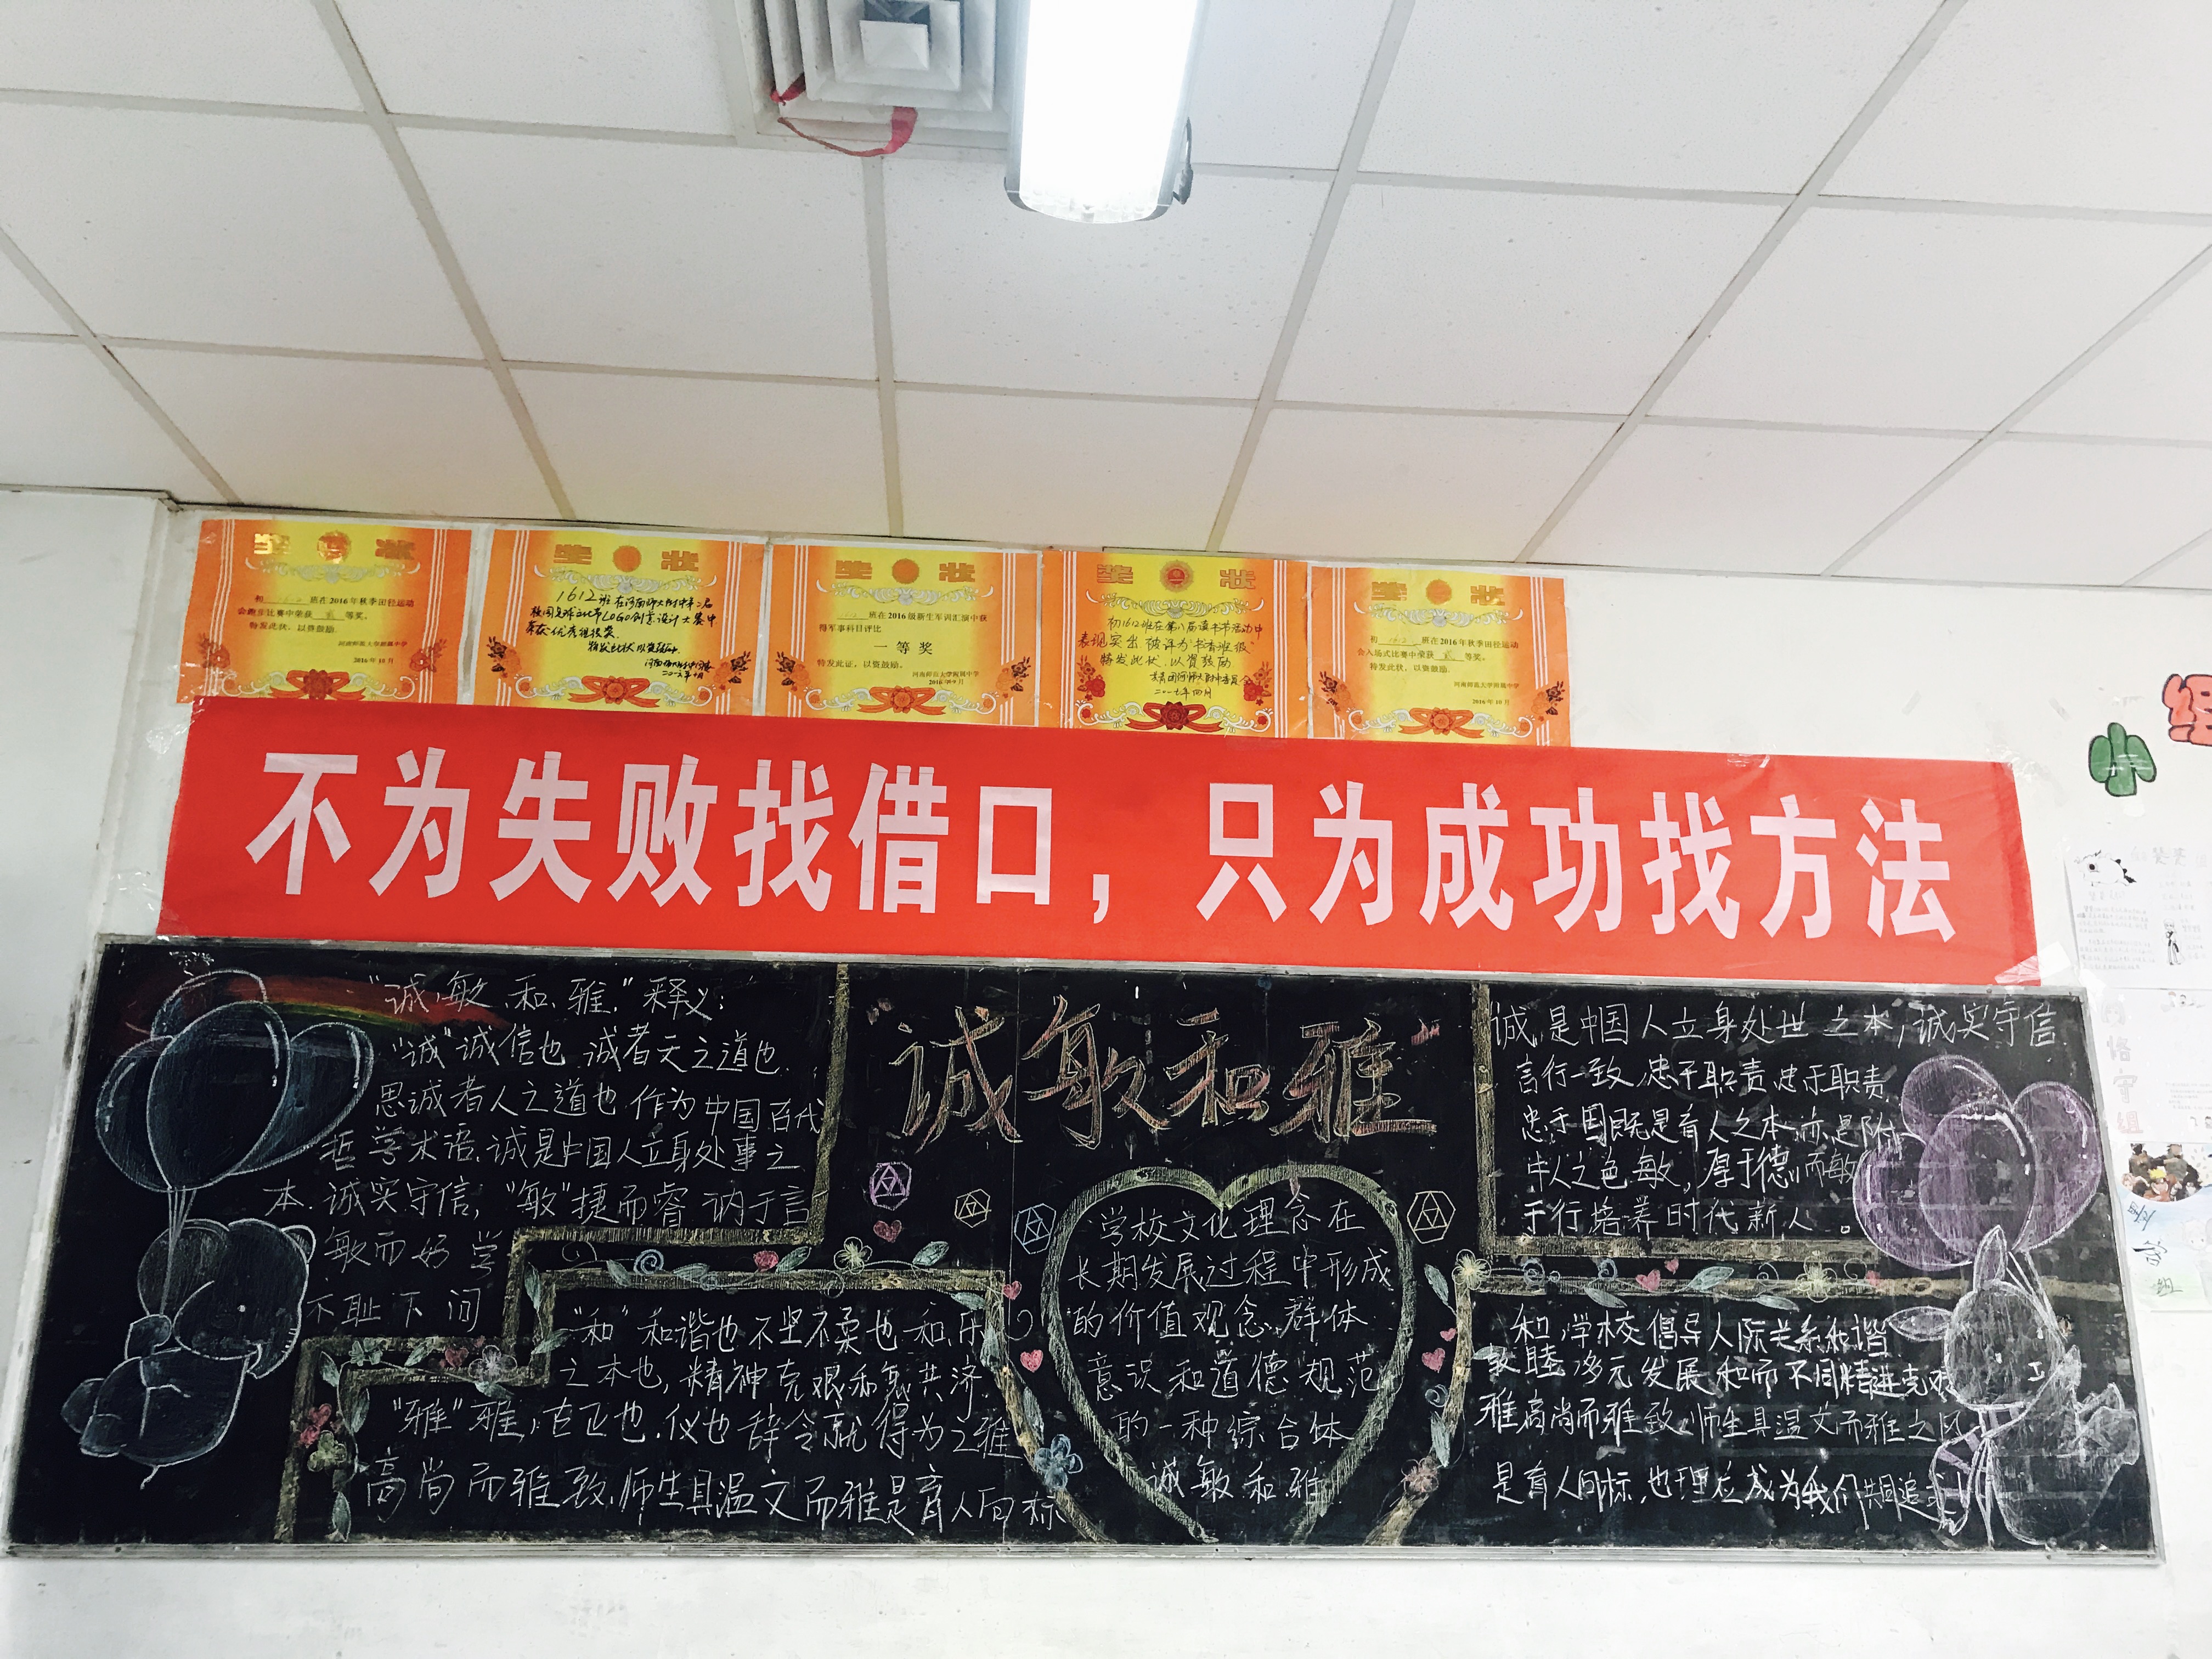 奖状
初1612班在2016年秋季田径运动
会跑步比赛中荣获贰等奖。
特发此状，以资鼓励。
河南师范大学附属中学
2016年10月
奖状
1612班在河南师大附中第二届
校园足球文化节LOGO创意设计大赛中
荣获优秀组织奖.
特发此状以资鼓励.
奖状
班在2016级新生军训汇演中获
得军事科目评比
一等奖
特发此证，以资鼓励。
河南师范大学附属中学
奖状
初1612班在第八届读书节活动中
表现突出 被评为"书香班级"
特发此状.以资鼓励
二〇一七年四月
奖状
初1612班在2016年秋季田径运动
会入场式比赛中荣获贰等奖。
特发此状，以资鼓励。
河南师范大学附属中学
2016年10月
不为失败找借口，只为成功找方法
小组
"诚.敏.和.雅."释义:
"诚"诚信也.诚者天之道也.
思诚者人之道也.作为中国百代
哲学术语.诚是中国人立身处事之
本.诚实守信;"敏"捷而睿 讷于言
敏而好学
不耻下问
"和"和谐也.不坚不柔也.和.乐
之本也,精神克艰和衷共济.
"雅"雅,古正也.仪也.辞令就得为之雅
高尚而雅致.师生具温文而雅是育人向标
"诚敏和雅"
学校文化理念在
长期发展过程中形成
的价值观念.群体
意识和道德规范
的一种综合体
诚敏和雅
诚,是中国人立身处世之本,诚实守信.
言行一致.忠于职责.忠于职责.
忠于国既是育人之本.亦是附
中人之色.敏,厚于德而敏
于行培养时代新人。
和,学校倡导人际关系和谐
敦睦.多元发展.和而不同精进克艰
雅高尚而雅致.师生具温文而雅之风
是育人向标,也理应成为我们共同追求